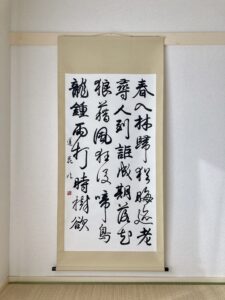 春入林歸猶晦迹老
尋人到詎成期落花
狼藉風狂後啼鳥
龍鍾雨打時樹欲